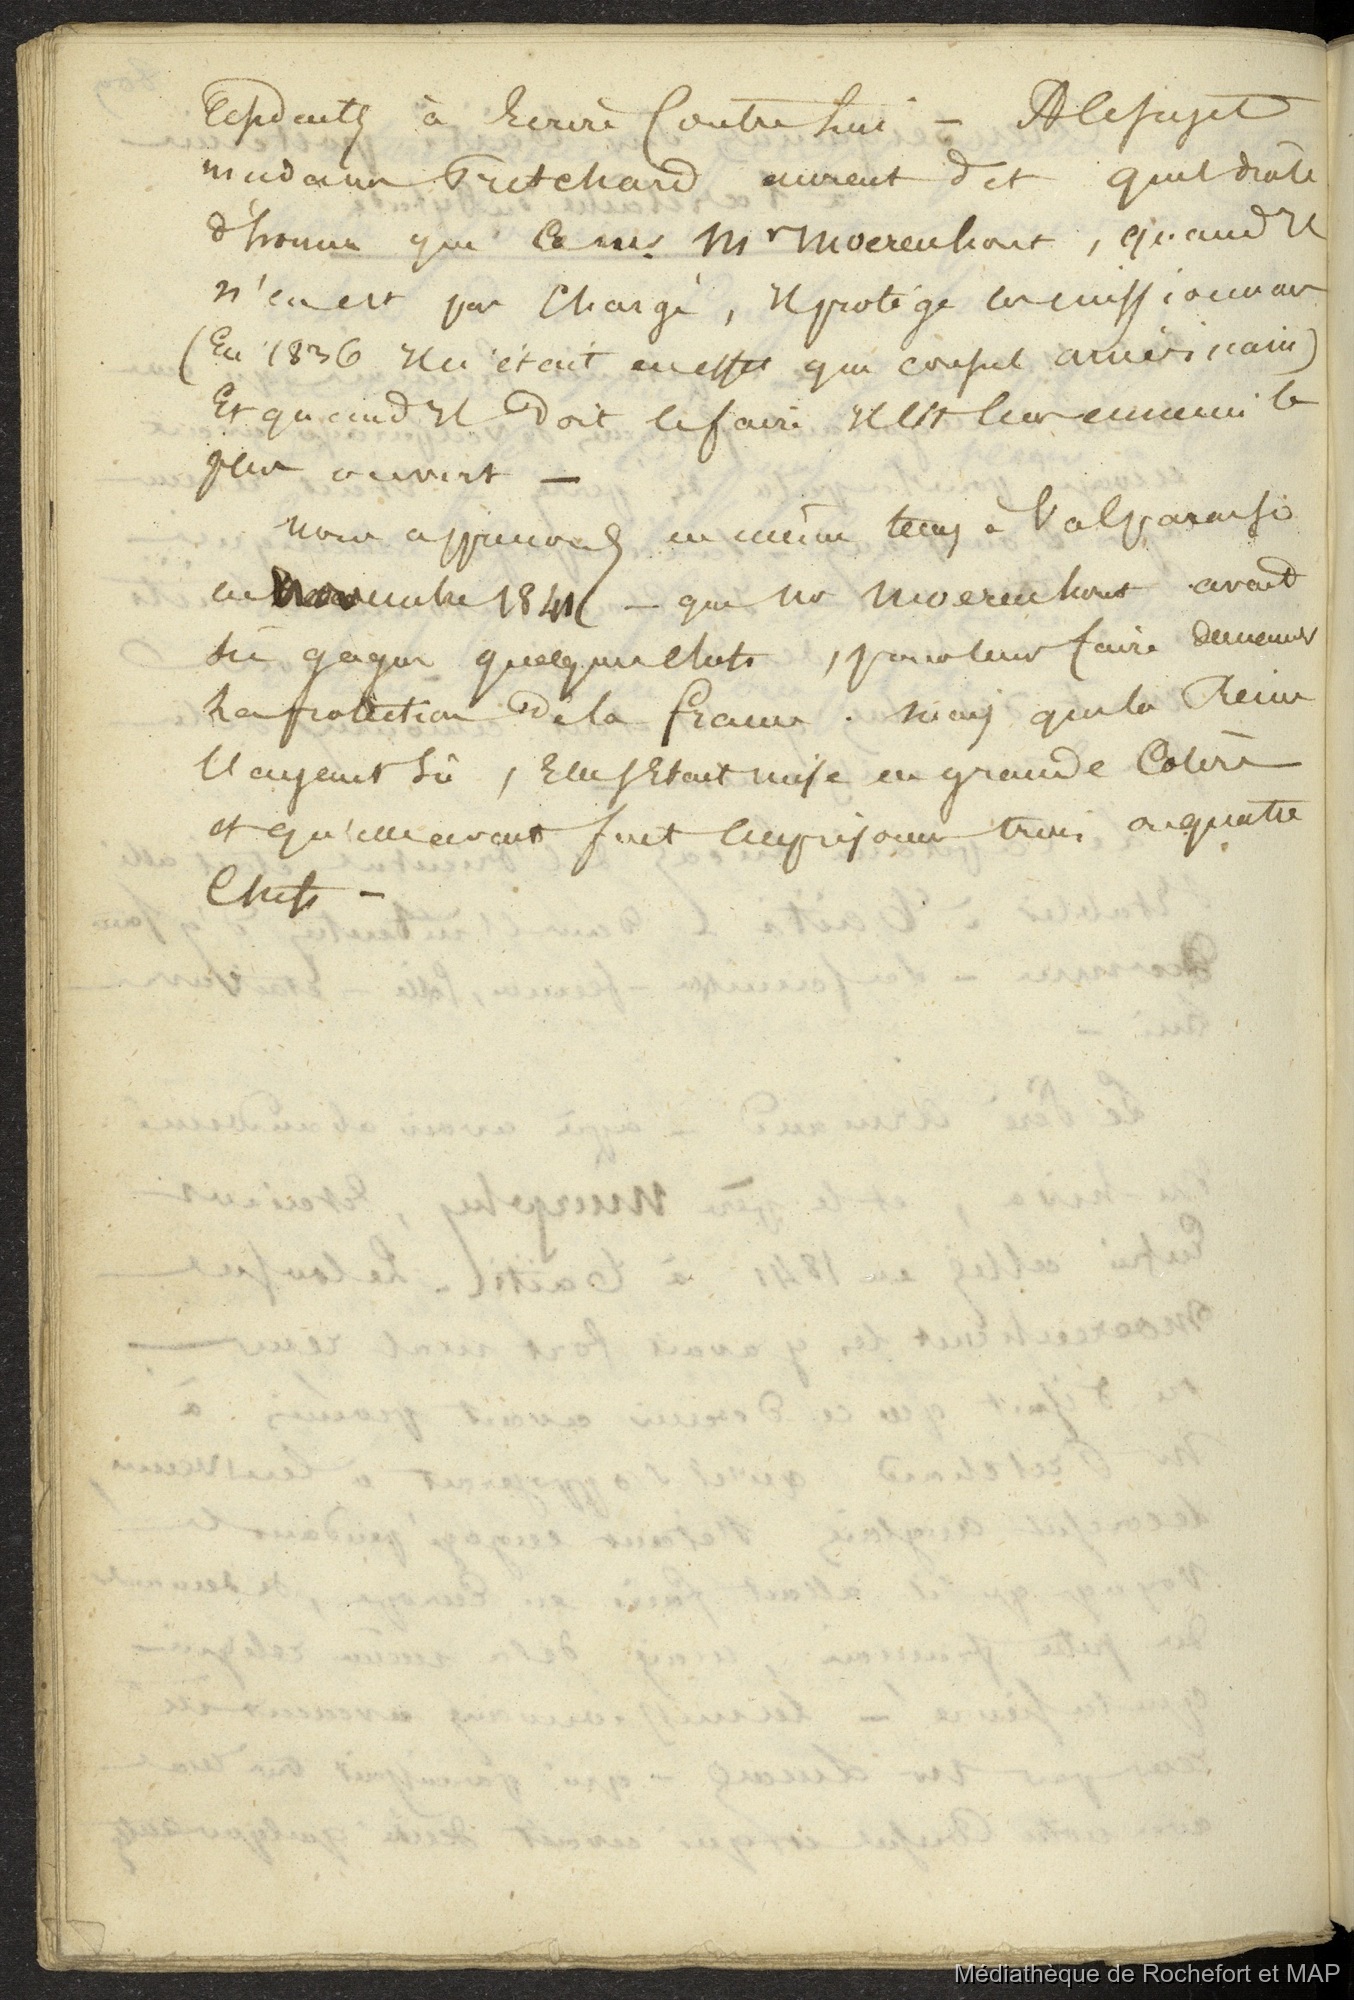 à Ecrire Contre Lui – A ce sujet
madame Pritchard aurait dit quel drole
d'homme que ce Mr Moerenhout, quand Il
n'en est pas Chargé, Il protége les missionnaires
(En 1836 Il n'était en effet que consul américain)
Et quand Il Doit le faire Il est leur ennemi le
plus ouvert –
nous apprimes en même tems à Valparaiso
en Novembre 1841 – que Mr Moerenhout avait
sû gagner quelques chefs, pour leur faire demander
La protection De la france. mais que la Reine
l'ayant sû, Elle s'Etait mise en grande Colère
et qu'elle avait fait Emprisonner trois ou quatre
Chefs –
Médiathèque de Rochefort et MAP